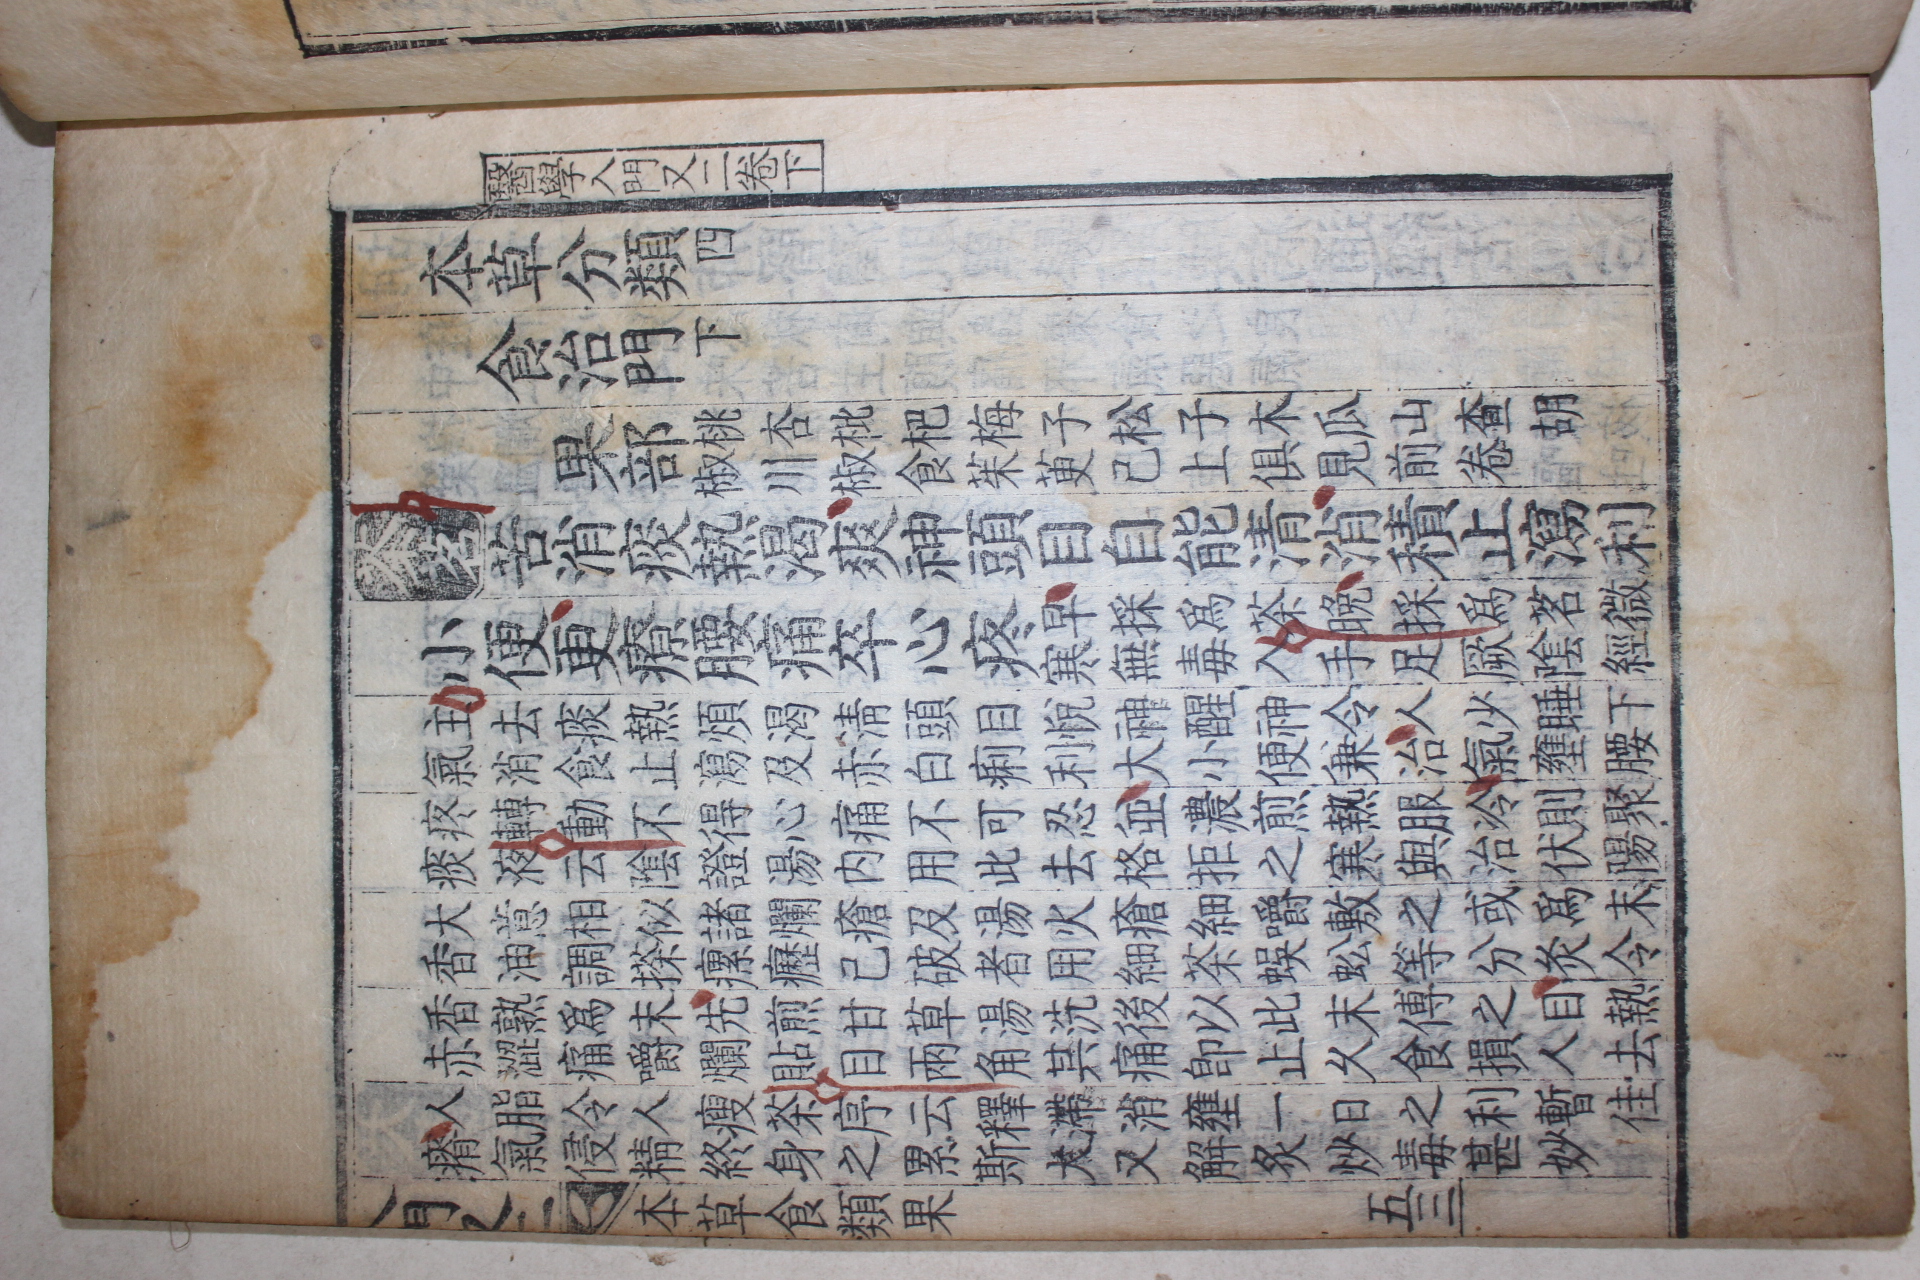 醫學入門又二卷下
本草分類四
食治門下
果部 桃杏枇杷梅子松子木瓜山查胡
椒川椒食茱萸已上俱見前卷
茶茗 苦消痰熱渴爽神頭目自能清消積止瀉利
小便更療腰痛卒心疼 早採爲茶晩採爲茗微
寒無毒入手足厥陰經
主去痰熱煩渴淸頭目悅神醒神令人少睡下
氣消食止瀉及赤白痢利大小便兼治氣壅腰
疼轉動不得心痛不可忍並濃煎熱服冷則聚
痰液云陰證湯內用此去格拒之寒與治伏陽
大意相似諸爛瘡及湯火瘡細嚼敷之或爲末
香油調搽瘰癧已破者用細茶蜈蚣等分炙令
香熟爲末先煎甘草湯洗後以此末傅之目熱
赤澀痛嚼爛貼目兩角其痛卽止久食損人去
人脂令人瘦茶序云釋滯消壅一日之利暫佳
瘠氣侵精終身之累斯大又解炙炒毒甚妙
入門又二 本草食類果 五三